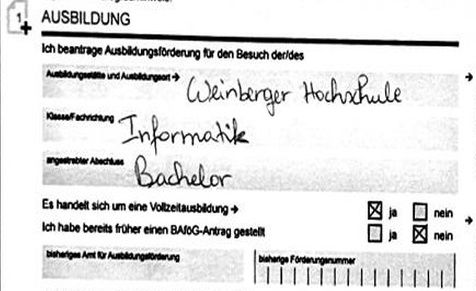 1 AUSBILDUNG
Ich beantrage Ausbildungsförderung für den Besuch der/des
Ausbildungsstätte und Ausbildungsort → Weinberger Hochschule
Klasse/Fachrichtung Informatik
angestrebter Abschluss Bachelor
Es handelt sich um eine Vollzeitausbildung → ☒ ja ☐ nein
Ich habe bereits früher einen BAföG-Antrag gestellt ☐ ja ☒ nein
bisheriges Amt für Ausbildungsförderung bisherige Förderungsnummer